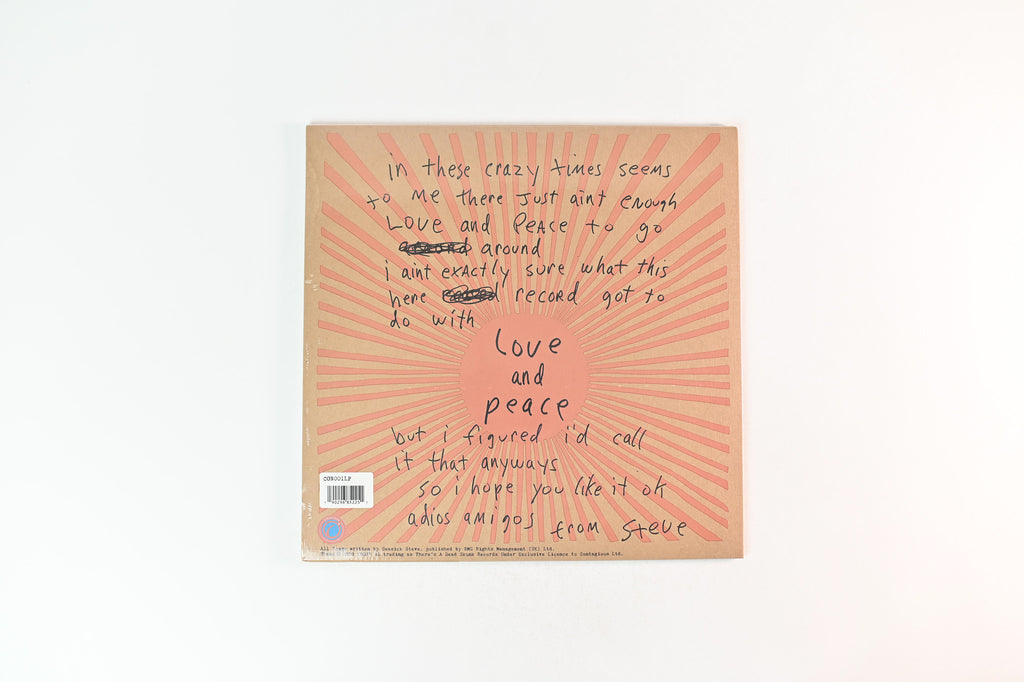 in these crazy times seems
to me there just aint enough
LOVE and PEACE to go
around
i aint exACTly sure what this
here RECORD got to
do with
Love
and
peace
but i figured i'd call
it that anyways
so i hope you like it ok
adios amigos from Steve
CON001LP
All songs written by Seasick Steve, published by BMG Rights Management (UK) Ltd.
trading as There's A Dead Skunk Records Under Exclusive Licence to Contagious Ltd.